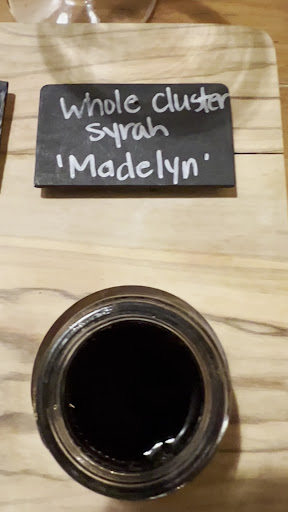 whole cluster
syrah
'Madelyn'